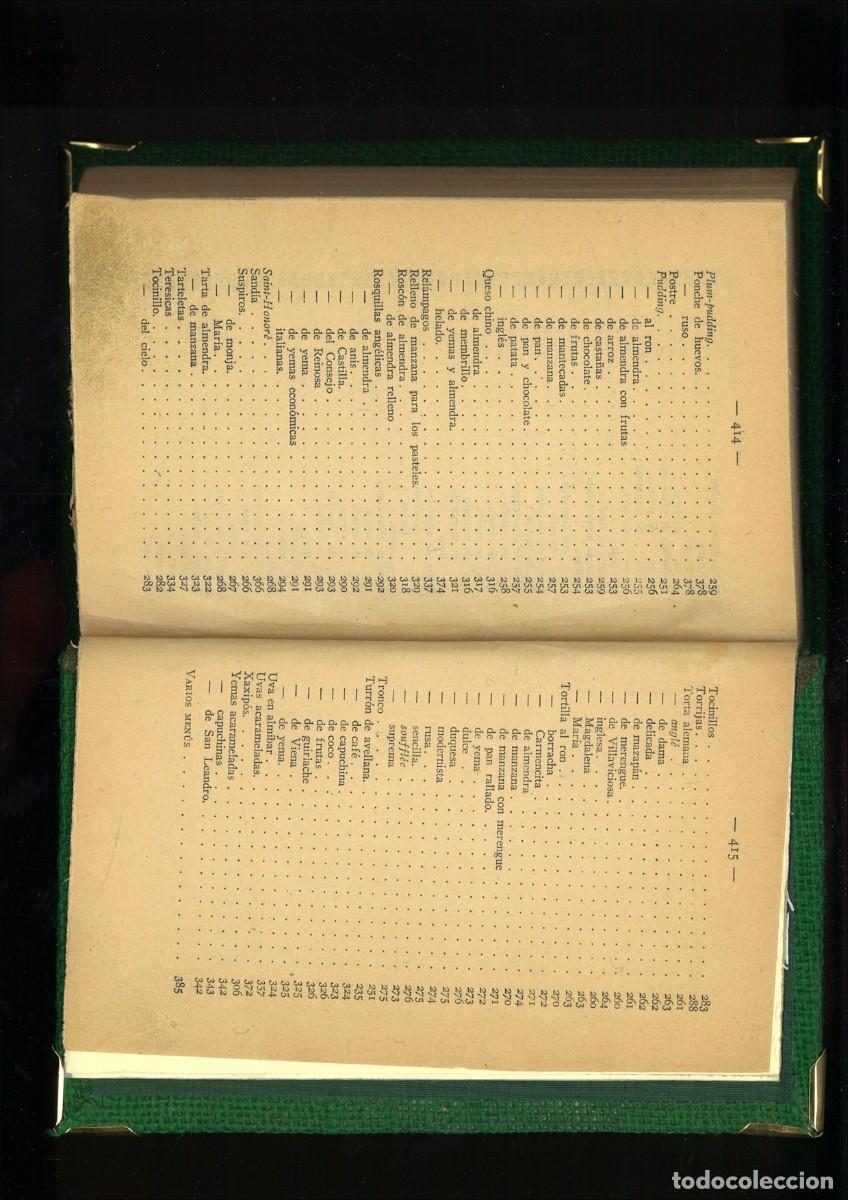 — 414 —
Plum-pudding. . . . . 259
Ponche de huevos. . . . . 378
— ruso . . . . . 378
Postre . . . . . 264
Pudding. . . . . 251
— al ron . . . . . 256
— de almendra . . . . . 255
— de almendra con frutas . . . . . 256
— de arroz . . . . . 253
— de castañas . . . . . 259
— de chocolate . . . . . 253
— de frutas . . . . . 254
— de mantecadas . . . . . 253
— de manzana . . . . . 257
— de pan . . . . . 254
— de pan y chocolate . . . . . 255
— de patata . . . . . 257
— inglés . . . . . 258
Queso chino . . . . . 316
— de almendra . . . . . 317
— de membrillo . . . . . 316
— de yemas y almendra . . . . . 321
— helado . . . . . 374
Relámpagos . . . . . 337
Relleno de manzana para los pasteles . . . . . 329
Roscón de almendra . . . . . 318
— de almendra relleno . . . . . 320
Rosquillas angélicas . . . . . 292
— de almendra . . . . . 291
— de anís . . . . . 292
— de Castilla . . . . . 290
— del Consejo . . . . . 293
— de Reinosa . . . . . 293
— de yema . . . . . 291
— de yemas económicas . . . . . 291
— italianas . . . . . 294
Saint-Honoré . . . . . 268
Sandía . . . . . 366
Suspiros . . . . . 266
— de monja . . . . . 267
— María . . . . . 268
Tarta de almendra . . . . . 322
— de manzana . . . . . 323
Tarteletas . . . . . 327
Teresicas . . . . . 334
Tocinillo . . . . . 282
— del cielo . . . . . 283
— 415 —
Tocinillos . . . . . 283
Torrijas . . . . . 288
Torta alemana . . . . . 261
— anglé . . . . . 263
— de dama . . . . . 262
— delicada . . . . . 262
— de mazapán . . . . . 261
— de merengue . . . . . 260
— de Villaviciosa . . . . . 264
— inglesa . . . . . 260
— Magdalena . . . . . 263
— María . . . . . 263
Tortilla al ron . . . . . 270
— borracha . . . . . 272
— Carmencita . . . . . 271
— de almendra . . . . . 274
— de manzana . . . . . 270
— de manzana con merengue . . . . . 271
— de pan rallado . . . . . 272
— de yema . . . . . 273
— dulce . . . . . 276
— duquesa . . . . . 275
— modernista . . . . . 274
— rusa . . . . . 275
— sencilla . . . . . 276
— soufflée . . . . . 273
— suprema . . . . . 275
Tronco . . . . . 251
Turrón de avellana . . . . . 235
— de café . . . . . 324
— de capuchina . . . . . 323
— de coco . . . . . 326
— de frutas . . . . . 326
— de guirlache . . . . . 325
— de Viena . . . . . 325
— de yema . . . . . 324
Uva en almíbar . . . . . 357
Uvas acarameladas . . . . . 372
Xaxipós . . . . . 306
Yemas acarameladas . . . . . 342
— capuchinas . . . . . 343
— de San Leandro . . . . . 342
VARIOS MENÚS . . . . . 385
todocoleccion